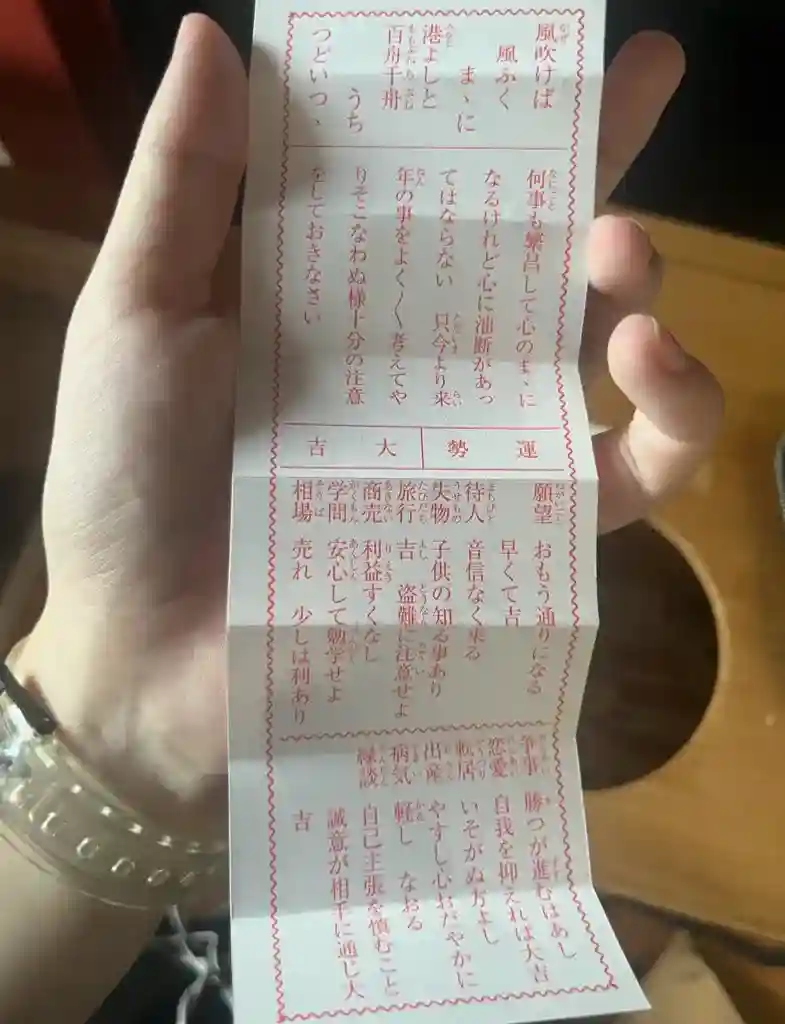 風吹けば
風ふく
まゝに
港よしと
百舟千舟
うち
つどいつゝ
何事も繁昌して心のまゝに
なるけれど心に油断があっ
てはならない 只今より来
年の事をよく〳〵考えてや
りそこなわぬ様十分の注意
をしておきなさい
運勢 大吉
願望 おもう通りになる
早くて吉
待人 音信なく来る
失物 子供の知る事あり
旅行 吉 盗難に注意せよ
商売 利益すくなし
学問 安心して勉学せよ
相場 売れ 少しは利あり
争事 勝つが進むはあし
恋愛 自我を抑えれば大吉
転居 いそがぬ方よし
出産 やすし心おだやかに
病気 軽し なおる
縁談 自己主張を慎むこと
誠意が相手に通じ大
吉